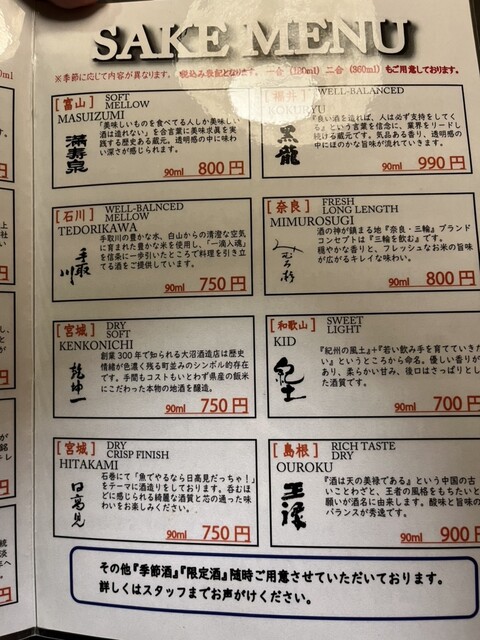 SAKE MENU
※季節に応じて内容が異なります。税込み表記となります。一合(180ml)二合(360ml)もご用意しております。
[富山] SOFT
MELLOW
MASUIZUMI
満寿泉
「美味しいものを食べてる人しか美味しい
酒は造れない」を合言葉に美味求眞を実
践する歴史ある蔵元。透明感の中に味わ
い深さが感じられます。
90ml 800円
[石川] WELL-BALNCED
MELLOW
TEDORIKAWA
手取川
手取川の豊かな水、白山からの清澄な空気
に育まれた豊かな米を使用し、「一滴入魂」
を信条に一歩引いたところで料理を引き立
てる酒をご提供しています。
90ml 750円
[宮城] DRY
SOFT
KENKONICHI
乾坤一
創業300年で知られる大沼酒造店は歴史
情緒が色濃く残る町並みのシンボル的存在
です。手間もコストもいとわず県産の飯米
にこだわった本物の地酒を醸造。
90ml 750円
[宮城] DRY
CRISP FINISH
HITAKAMI
日高見
石巻にて「魚でやるなら日高見だっちゃ!」
をテーマに酒造りをしております。呑むほ
どに感じられる綺麗な酒質と芯の通った味
わいをお楽しみください。
90ml 750円
[福井] WELL-BALANCED
KOKURYU
黒龍
『良い酒を造れば、人は必ず支持をしてく
る』という言葉を信念に、業界をリードし
続ける蔵元です。気品ある香り、透明感の
中にほのかな旨味が流れていきます。
90ml 990円
[奈良] FRESH
LONG LENGTH
MIMUROSUGI
みむろ杉
酒の神が鎮まる地『奈良・三輪』ブランド
コンセプトは『三輪を飲む』です。
穏やかな香りと、フレッシュなお米の旨味
が広がるキレイな味わい。
90ml 800円
[和歌山] SWEET
LIGHT
KID
紀土
『紀州の風土』+『若い飲み手を育てていきた
い』というところから命名。優しい香りが
あり、柔らかい甘み、後口はさっぱりとし
た酒質です。
90ml 700円
[島根] RICH TASTE
DRY
OUROKU
王祿
『酒は天の美禄である』という中国の古
いことわざと、王者の風格をもちたいと
願いが酒名に由来します。酸味と旨味の
バランスが秀逸です。
90ml 900円
その他『季節酒』『限定酒』随時ご用意させていただいております。
詳しくはスタッフまでお声がけください。